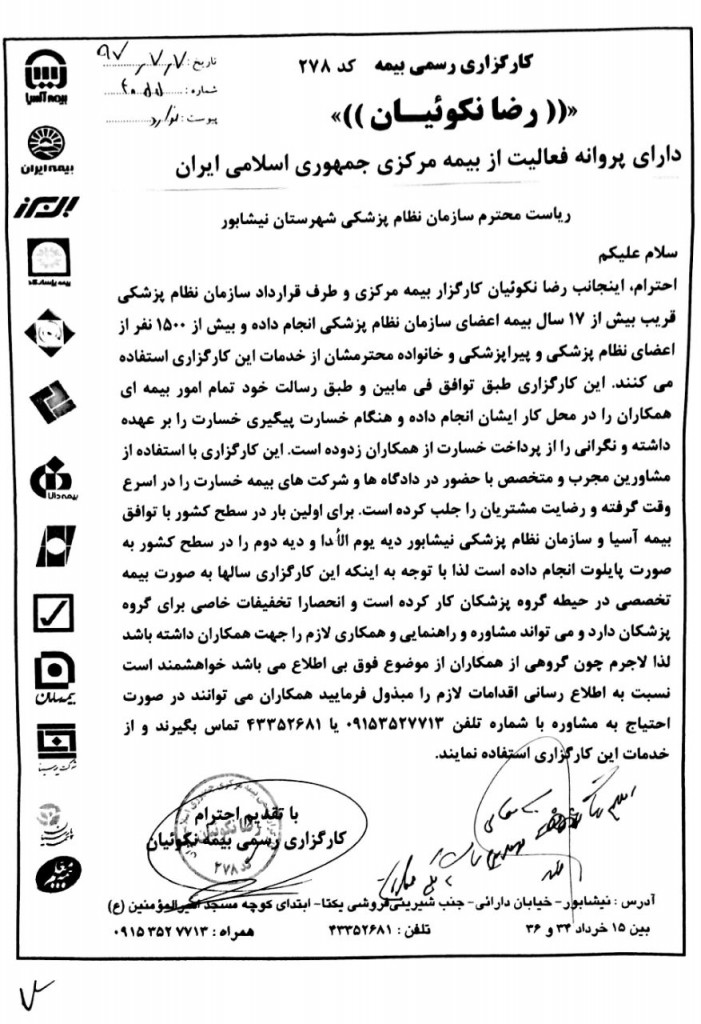 تاریخ: ۹۷٫۷٫۷
شماره:
پیوست: ندارد
کارگزاری رسمی بیمه کد ۲۷۸
«(( رضا نکوئیـــان ))»
دارای پروانه فعالیت از بیمه مرکزی جمهوری اسلامی ایران
ریاست محترم سازمان نظام پزشکی شهرستان نیشابور
سلام علیکم
احترام، اینجانب رضا نکوئیان کارگزار بیمه مرکزی و طرف قرارداد سازمان نظام پزشکی
قریب بیش از ۱۷ سال بیمه اعضای سازمان نظام پزشکی انجام داده و بیش از ۱۵۰۰ نفر از
اعضای نظام پزشکی و پیراپزشکی و خانواده محترمشان از خدمات این کارگزاری استفاده
می کنند. این کارگزاری طبق توافق فی مابین و طبق رسالت خود تمام امور بیمه ای
همکاران را در محل کار ایشان انجام داده و هنگام خسارت پیگیری خسارت را بر عهده
داشته و نگرانی را از پرداخت خسارت از همکاران زدوده است. این کارگزاری با استفاده از
مشاورین مجرب و متخصص با حضور در دادگاه ها و شرکت های بیمه خسارت را در اسرع
وقت گرفته و رضایت مشتریان را جلب کرده است. برای اولین بار در سطح کشور با توافق
بیمه آسیا و سازمان نظام پزشکی نیشابور دیه یوم الأدا و دیه دوم را در سطح کشور به
صورت پایلوت انجام داده است لذا با توجه به اینکه این کارگزاری سالها به صورت بیمه
تخصصی در حیطه گروه پزشکان کار کرده است و انحصارا تخفیفات خاصی برای گروه
پزشکان دارد و می تواند مشاوره و راهنمایی و همکاری لازم را جهت همکاران داشته باشد
لذا لاجرم چون گروهی از همکاران از موضوع فوق بی اطلاع می باشد خواهشمند است
نسبت به اطلاع رسانی اقدامات لازم را مبذول فرمایید همکاران می توانند در صورت
احتیاج به مشاوره با شماره تلفن ۰۹۱۵۳۵۲۷۷۱۳ یا ۴۳۳۵۲۶۸۱ تماس بگیرند و از
خدمات این کارگزاری استفاده نمایند.
با تقدیم احترام
کارگزاری رسمی بیمه نکوئیان
رضا نکوئیان
کد ۲۷۸
آدرس : نیشابور- خیابان دارائی- جنب شیرینی فروشی یکتا- ابتدای کوچه مسجد امیرالمؤمنین (ع)
بین ۱۵ خرداد ۳۴ و ۳۶
تلفن : ۴۳۳۵۲۶۸۱
همراه : ۷۷۱۳ ۳۵۲ ۰۹۱۵
بیمه آسیا
بیمه ایران
البرز
بیمه دانا
بیمه سامان